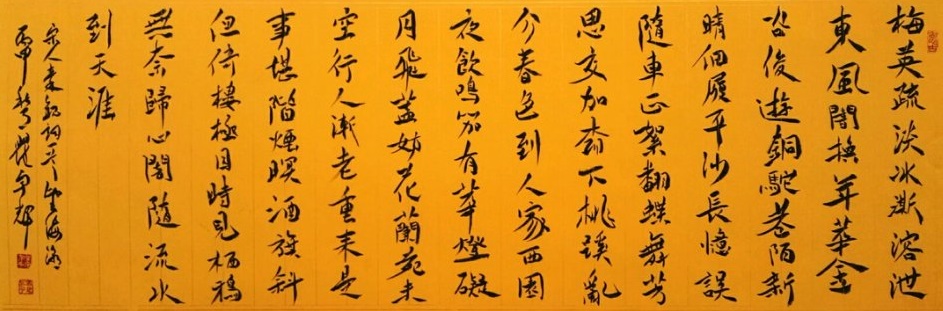 梅英疏淡冰澌溶泄
東風闇換年華金
谷俊遊銅駝巷陌新
晴細履平沙長憶誤
隨車正絮翻蝶舞芳
思交加柳下桃蹊亂
分春色到人家西園
夜飲鳴笳有華燈礙
月飛蓋妨花蘭苑未
空行人漸老重來是
事堪嗟煙暝酒旗斜
但倚樓極目時見栖鴉
無奈歸心闇隨流水
到天涯
宋人秦觀詞一首望海潮
丙申